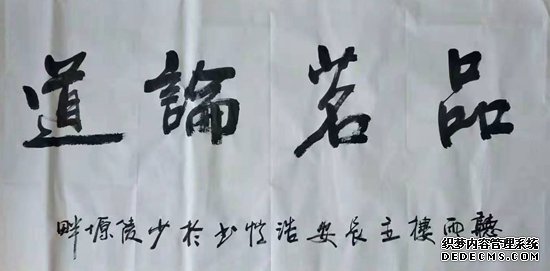 品茗論道
聽雨樓主長安浩性书於少陵塬畔
织梦内容管理系统
DEDECMS.COM